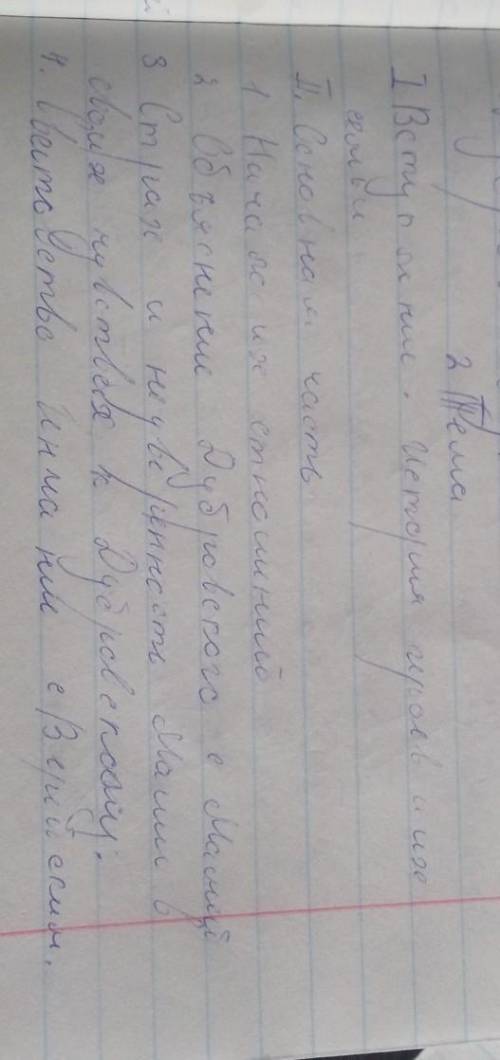 2 Тема
I Вступление. История героев и их
семьи.
II. Основная часть
1 Начало их отношений
2 Объяснение Дубровского с Машей
3 Страх и неуверенность Маши в
своих чувствах к Дубровскому.
4. с Верейским.